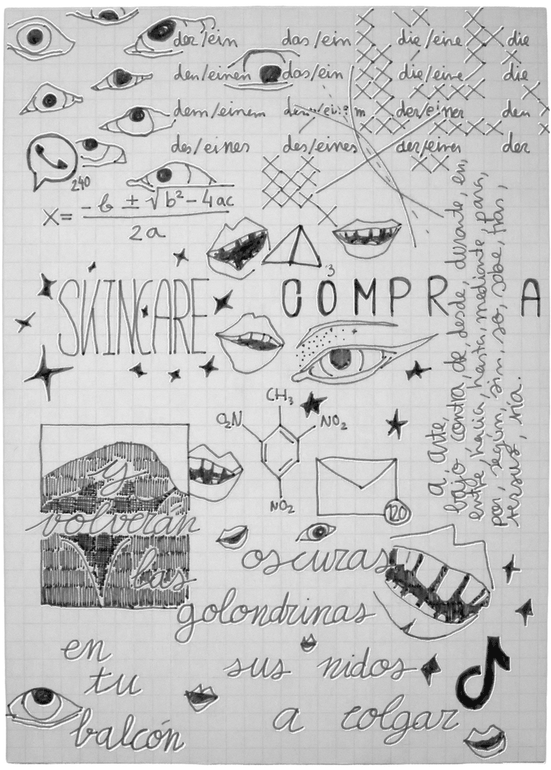 der/ein das/ein die/eine die
den/einen das/ein die/eine die
dem/einem der/einer den
des/eines des/eines der/einer der
240
x = -b ± √b² - 4ac
2a
3
SKINCARE
COMPR A
a, ante,
bajo contra, de, desde, durante en,
entre, hacia, hasta, mediante, para,
por, según, sin, so, sobre, tras,
versus, vía.
CH₃
O₂N NO₂
NO₂
120
y
volverán
las
oscuras
golondrinas
en
tu
balcón
sus nidos
a colgar